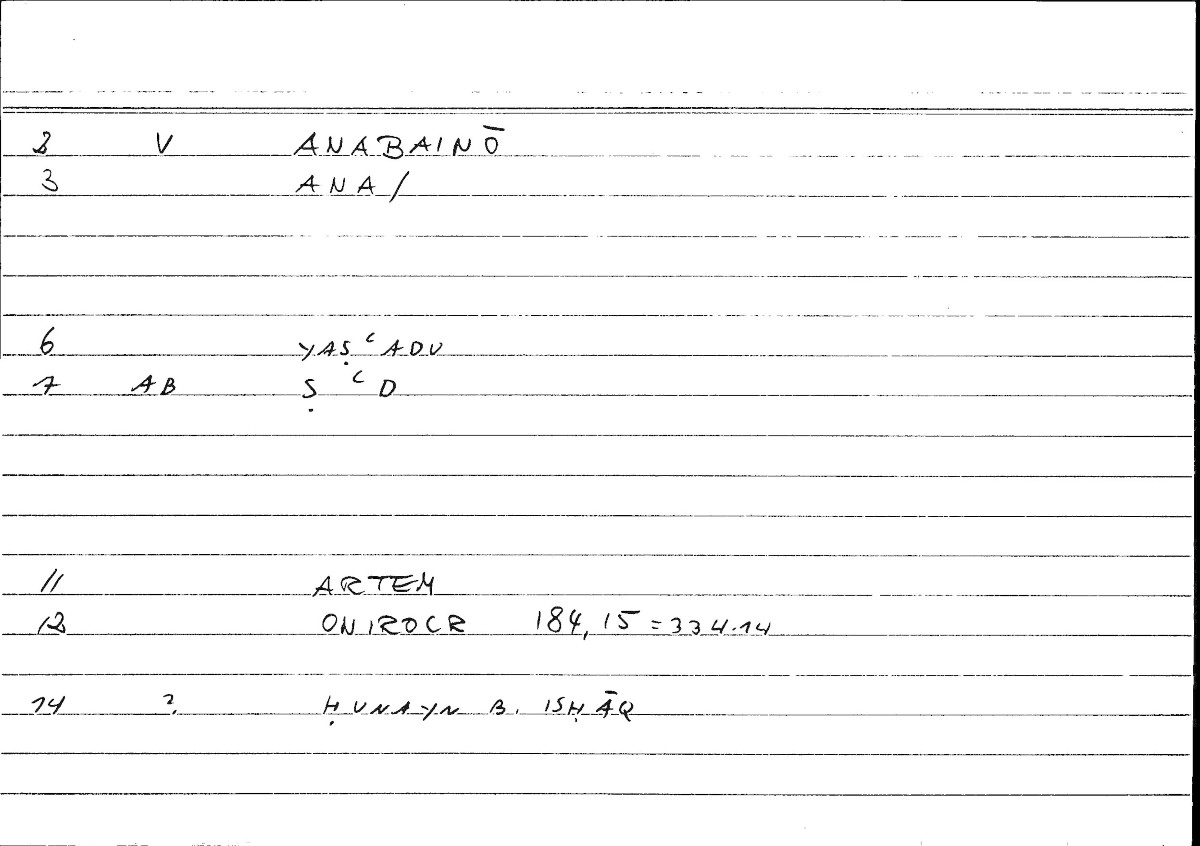 2 V ANABAINŌ
3 ANA/
6 YAṢʿADU
7 AB Ṣ ʿ D
11 ARTEM
12 ONIROCR 184,15 = 334.14
14 ? ḤUNAYN B. ISḤĀQ